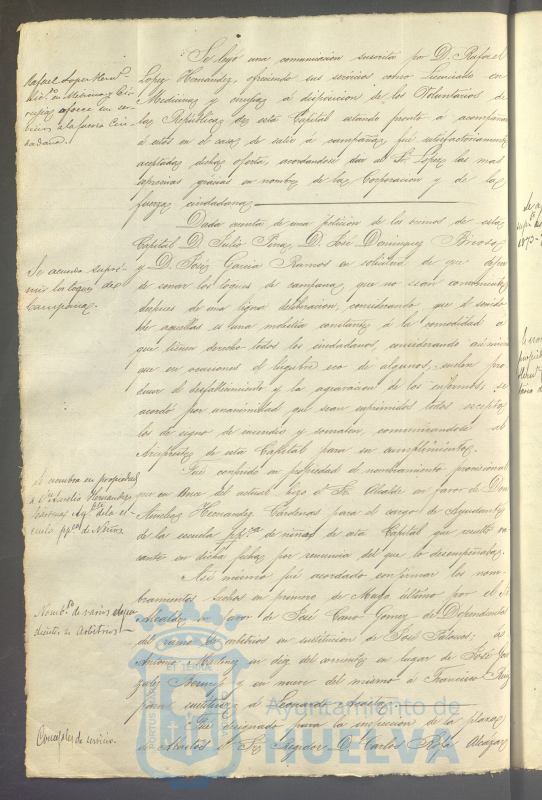 Se leyó una comunicación suscrita por D. Rafael
Lopez Hernandez, ofreciendo sus servicios como Licenciado en
Medicina y cirugia á disposicion de los Voluntarios de
la República de esta Capital estando pronto á acompañar
á estos en el caso de salir á campaña, fué satisfactoriamente
aceptada dicha oferta, acordandose dar al Sr. Lopez las mas
espresivas gracias en nombre de la Corporacion y de la
fuerza ciudadana
Rafael Lopez Hern.
Lic. en Medicina y Ci
rugia, ofrece sus ser
vicios a la fuerza Ciu
dadana.
Dada cuenta de una peticion de los vecinos de esta
Capital D. Julio Pina, D. José Dominguez
y D. José Garcia Ramos en solicitud de que dejen
de sonar los toques de campana que no sean convenientes
despues de una ligera deliberacion, considerando que el sonido
de aquellas es una molestia constante á la comodidad á
que tienen derecho todos los ciudadanos, considerando asi mismo
que en ocasiones el lúgubre eco de algunos, suelen pro
ducir el desfallecimiento y la agravacion de los enfermos, se
acordó por unanimidad que sean suprimidos todos excepto
los de signo de incendio y somaten, comunicandose al
Arcipreste de esta Capital para su cumplimiento.
Se acuerda supri
mir los toques de
Campana.
Fué conferido en propiedad el nombramiento provisional
que en doce del actual hizo el Sr. Alcalde en favor de Doña
Amelia Hernandez Cárdenas para el cargo de Ayudante
de la escuela pp.ca de niñas de esta Capital que resultó va
cante en dicha fecha por renuncia del que lo desempeñaba.
Se nombra en propiedad
a D.ª Amelia Hernandez
Cardenas Ay.te de la es
cuela pp.ca de Niñas
Asi mismo fué acordado confirmar los nom
bramientos hechos en primero de Mayo último por el Sr.
Alcalde á favor de José Cano Gomez de Dependiente
del ramo de arbitrios en sustitucion de José Palacios; de
Antonio Martinez en diez del corriente en lugar de José Gon
zalez y en nueve del mismo á Francisco Ruiz
para sustituir á Leonardo Acosta
Nomb.to de varios depen
dientes de Arbitrios
Fué designado para la inspeccion de la plaza
de abastos el Sr. Regidor D. Carlos Rofa Alcázar
Concejales de servicio.
Ayuntamiento de
HUELVA